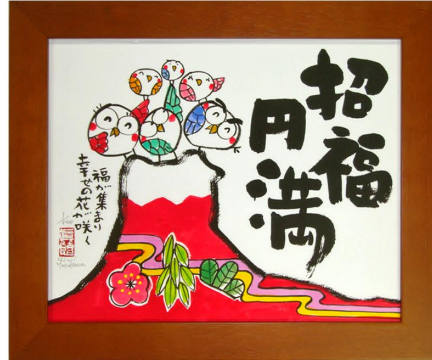 招福
円満
福が集まり
幸せの花が咲く